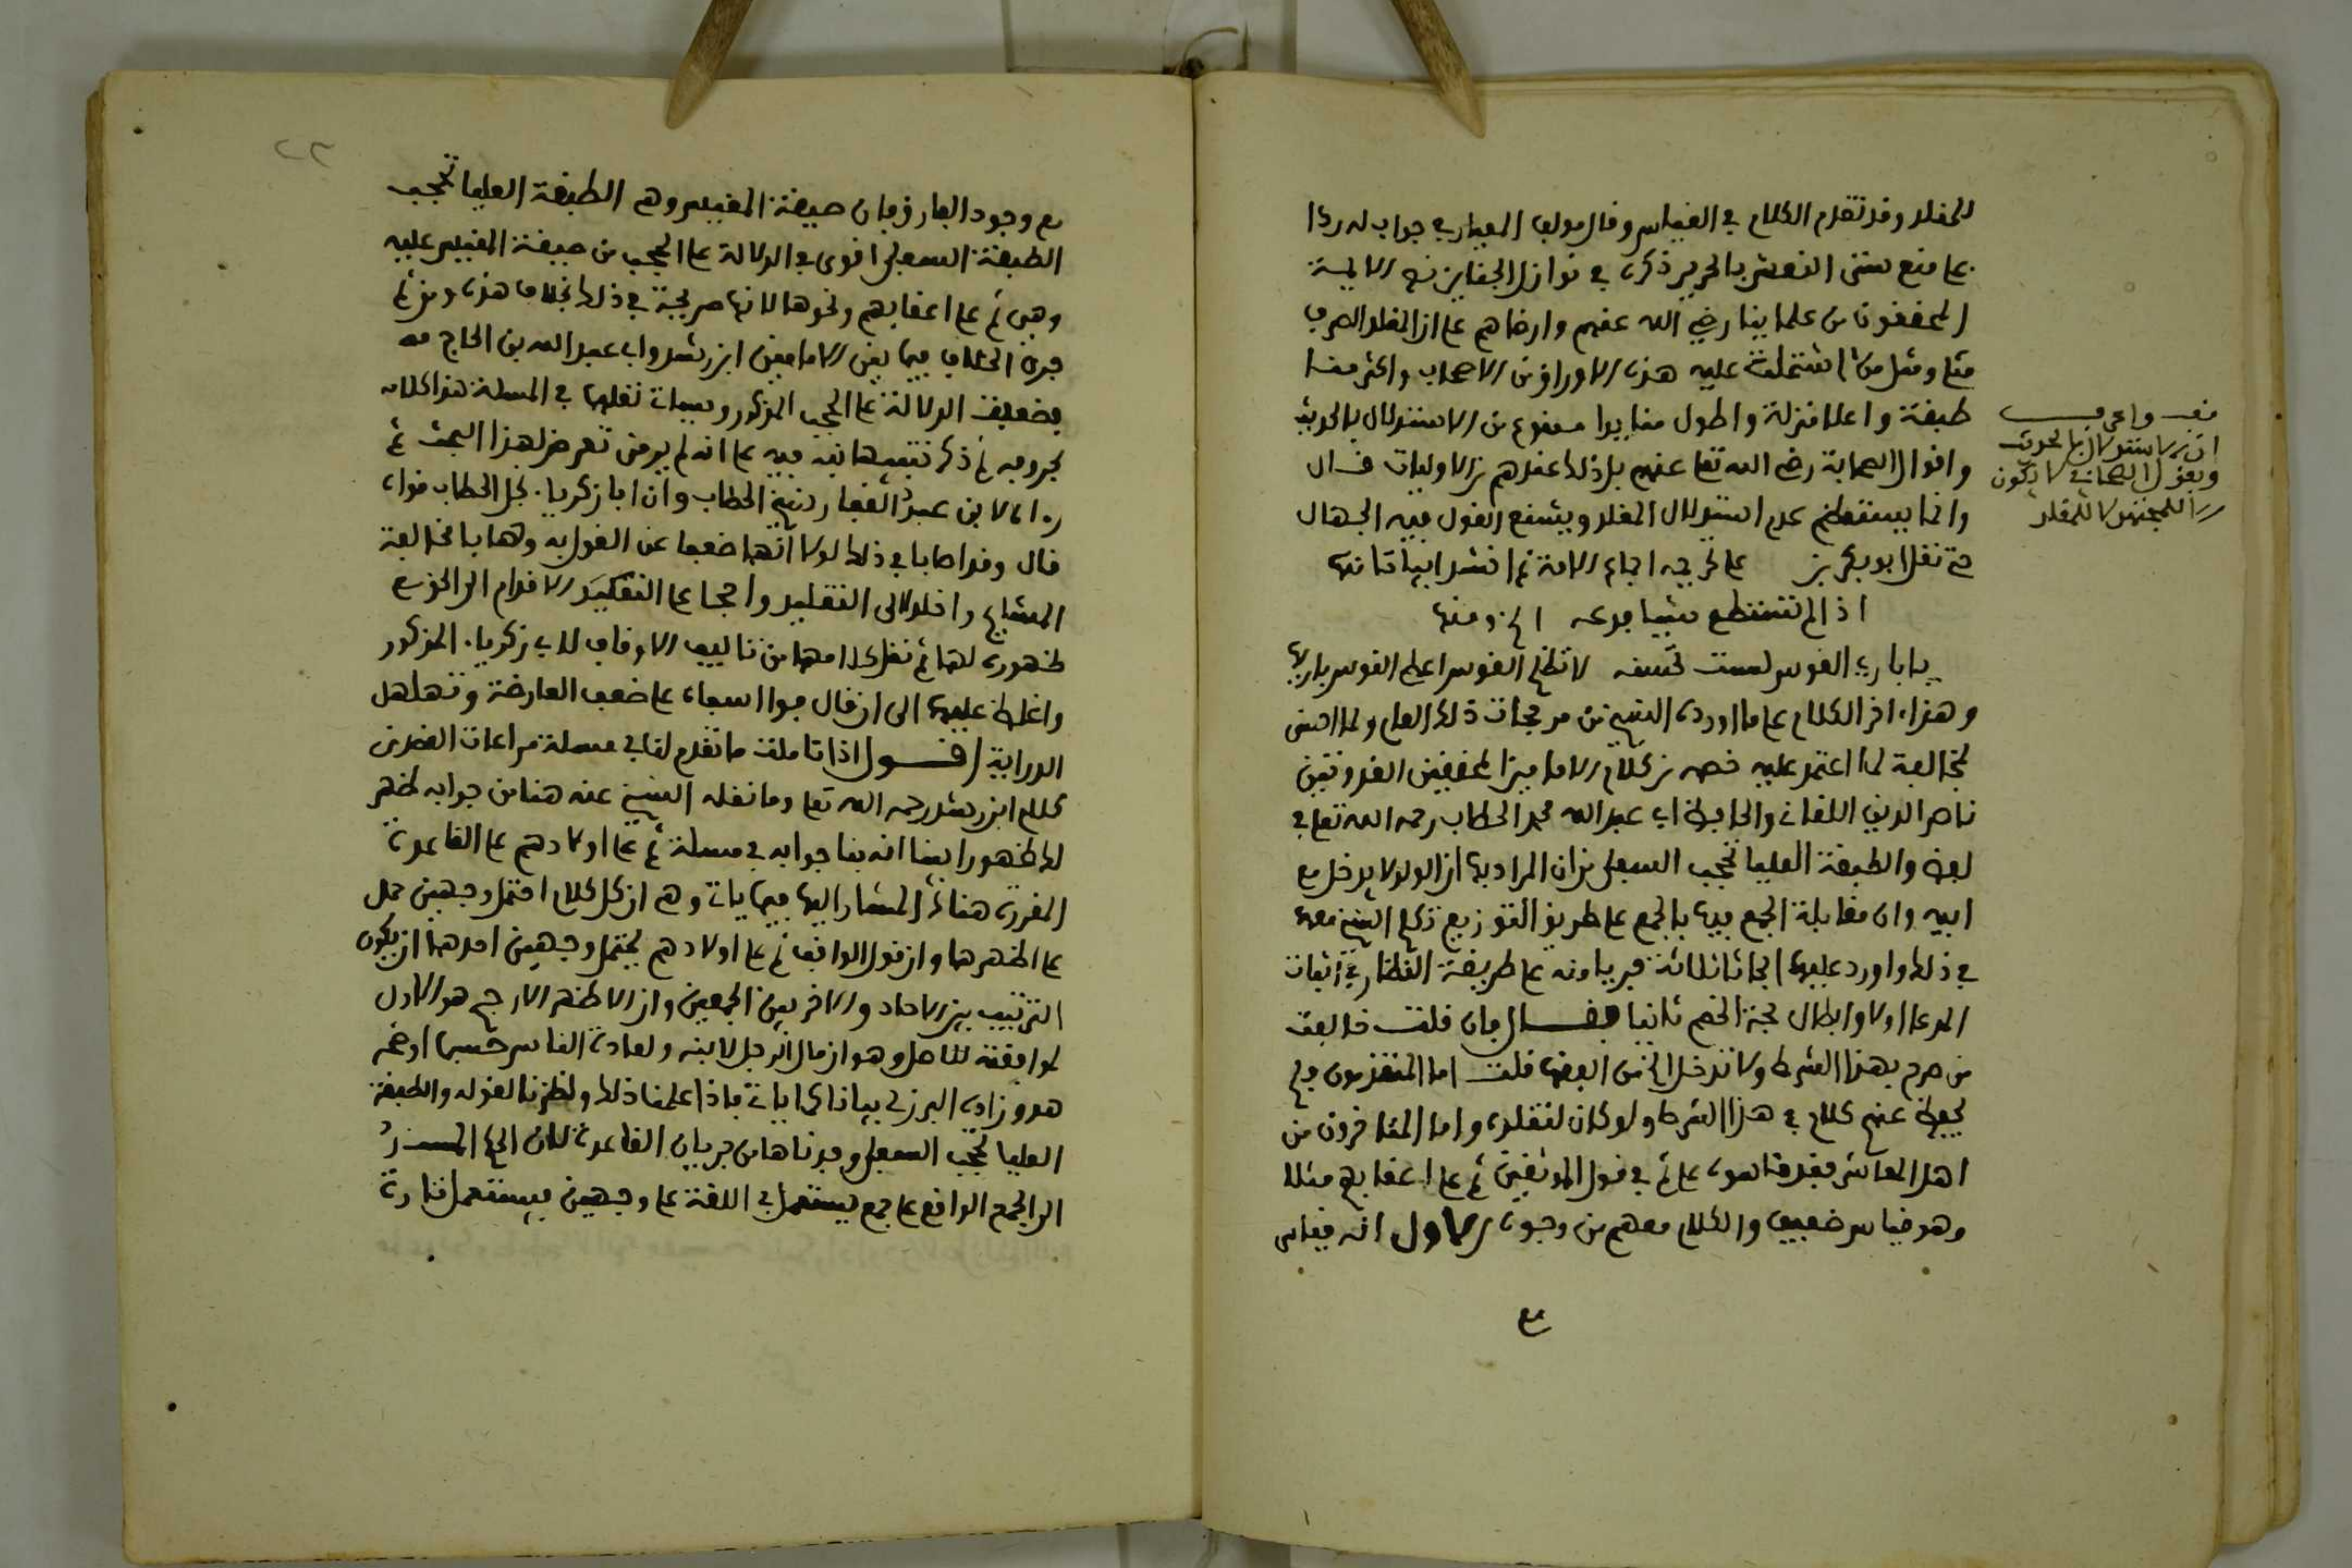 للمقلد وقد تقدم الكلام في القياس وقال مولف المعيار في جواب له ردا
على منع ستر النعش بالحرير ذكره في نوازل الجنايز نص الايمة
المحققون من علماينا رضي الله عنهم وارضاهم على ان المقلد الصرف
مثلي ومثل من اشتملت عليه هذه الاوراق من الاصحاب واكثر منا
طبقة واعلا منزلة واطول منا يدا ممنوع من الاستدلال بالحديث
واقوال الصحابة رضي الله تعا عنهم بل ذلك عندهم من الاوليات قال
وانما يستعظم عدم استدلال المقلد ويشنع القول فيه الجهال
حتى نقل ابو بكر بن على تحريمه اجماع الامة ثم انشد ابياتا منها
اذا لم تستطع شيا فدعه الخ ومنها
يا باري القوس لست تحسنه لا تظلم القوس اعط القوس باريها
وهذا اخر الكلام على ما اورده الشيخ من مرجحات ذلك العام ولما
مخالفة لما اعتمد عليه خصه من كلام الامامين المحققين القدوتين
ناصر الدين اللقاني والحافظ ابي عبد الله محمد الحطاب رحمه الله تعا في
لفظ والطبقة العليا تحجب السفلى من ان المراد بها ان الولد لا يدخل مع
ابيه وان مقابلة الجمع فيها بالجمع على طريق التوزيع ذكر الشيخ معهما
في ذلك واورد عليهما ابحاثا ثلاثة جريا منه على طريقة النظار في اثبات
المدعا اولا وابطال حجة الخصم ثانيا فقال فان قلت خالفت
من صرح بهذا الشرط ولا تدخل الخ من البعض قلت اما المتقدمون فلم
يحفظ عنهم كلام في هذا الشرط ولو كان لنقلوه واما المتاخرون من
اهل المعاشر فقد قاسوه على ثم في قول الموثقين ثم على اعقابهم مثلا
وهو قياس ضعيف والكلام معهم من وجوه الاول انه قياس
مع
قف واعرف
ان الاستدلال بالحديث
وبقول الصحابي لا يكون
الا للمجتهد لا للمقلد
٢٢
مع وجود الفارق فان صيغة المقيس وهم الطبقة العليا تحجب
الطبقة السفلى اقوى في الدلالة على الحجب من صيغة المقيس عليه
وهي ثم على اعقابهم ونحوها لانها صريحة في ذلك بخلاف هذه ومن ثم
جرى الخلاف فيما بين الامامين ابن رشد وابي عبد الله بن الحاج
بضعيف الدلالة على الحجب المذكور وسيات نقلها في المسلة هذا كلامه
بحروفه ثم ذكر تنبيها نبه فيه على انه لم ير من تعرض لهذا البحث ثم
راى لابن عبد الغفار شيخ الحطاب وان ابا زكرياء نجل الحطاب قواه
قال وقد اصابا في ذلك لولا انهما ضعفا عن القول به وهابا مخالفة
المشايخ واخلدا الى التقليد واحجما على التقييد الاقدام الى الخوض
ظهوره لهما ثم نقل كلامهما من تاليف الاوقاف لابي زكريا المذكور
واغلظ عليهما الى ان قال فوا اسفاه على ضعف العارضة وتهلهل
الدراية اقول اذا تاملت ما تقدم لنا في مسلة مراعات القصد من
كلام ابن رشد رحمه الله تعا وما نقله الشيخ عنه هنا من جوابه ظهر
لك ظهورا بينا انه بنا جوابه في مسلة ثم على اولادهم على القاعدة
المقررة هناك المشار اليها فيما يات وهي ان كل كلام احتمل وجهين حمل
على اظهرهما وان قول الواقف ثم على اولادهم يحتمل وجهين احدهما ان يكون
الترتيب بين الاحاد والاخر بين الجمعين وان الاظهر الارجح هو الاول
لموافقته للاصل وهو ان مال الرجل لابنه ولعادة الناس حسبما اوضحه
هو وزاده البرزلي بيانا كما يات فاذا علمنا ذلك ونظرنا لقوله والطبقة
العليا تحجب السفلى وجدناها من جريان القاعدة لان الحكم المسند
الى الجمع الواقع على جمع يستعمل في اللغة على وجهين فيستعمل تارة